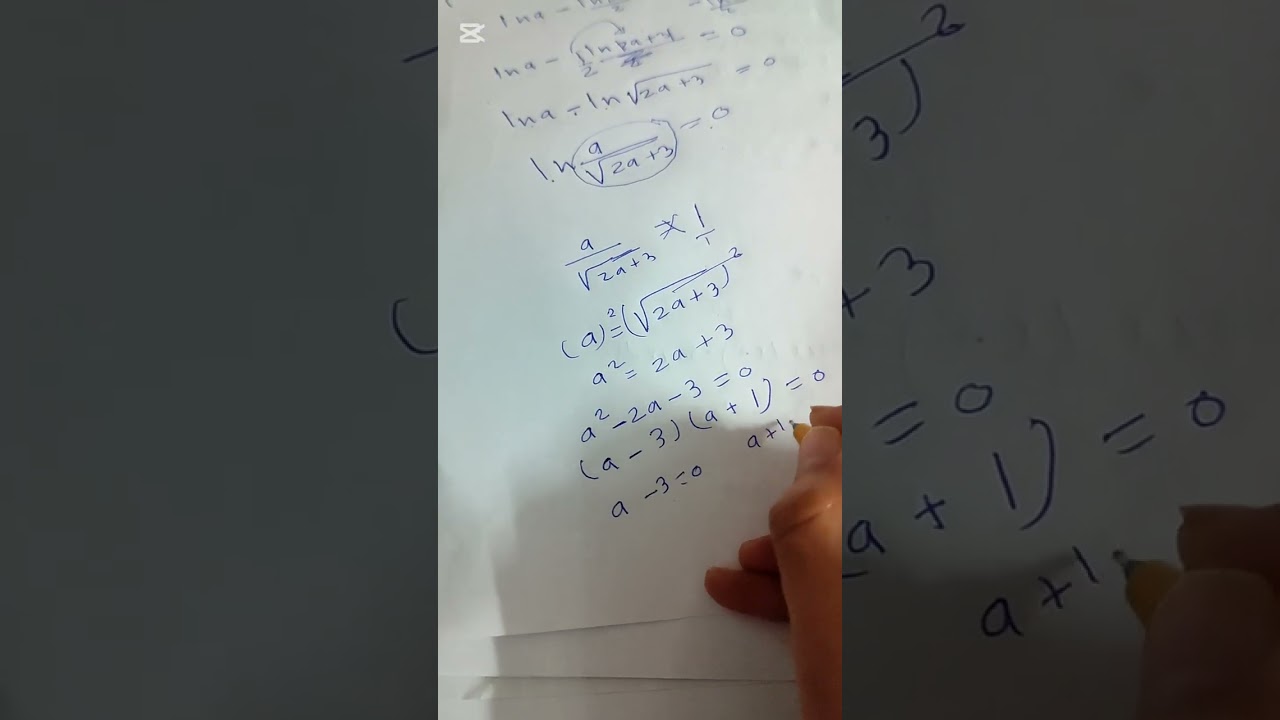 ln a -
ln a - 1/2 ln = 0
ln a - ln √2a+3 = 0
ln a/√2a+3 = 0
a/√2a+3 = 1/1
(a)² = (√2a+3)²
a² = 2a + 3
a² - 2a - 3 = 0
(a - 3) (a + 1) = 0
a - 3 = 0 a + 1